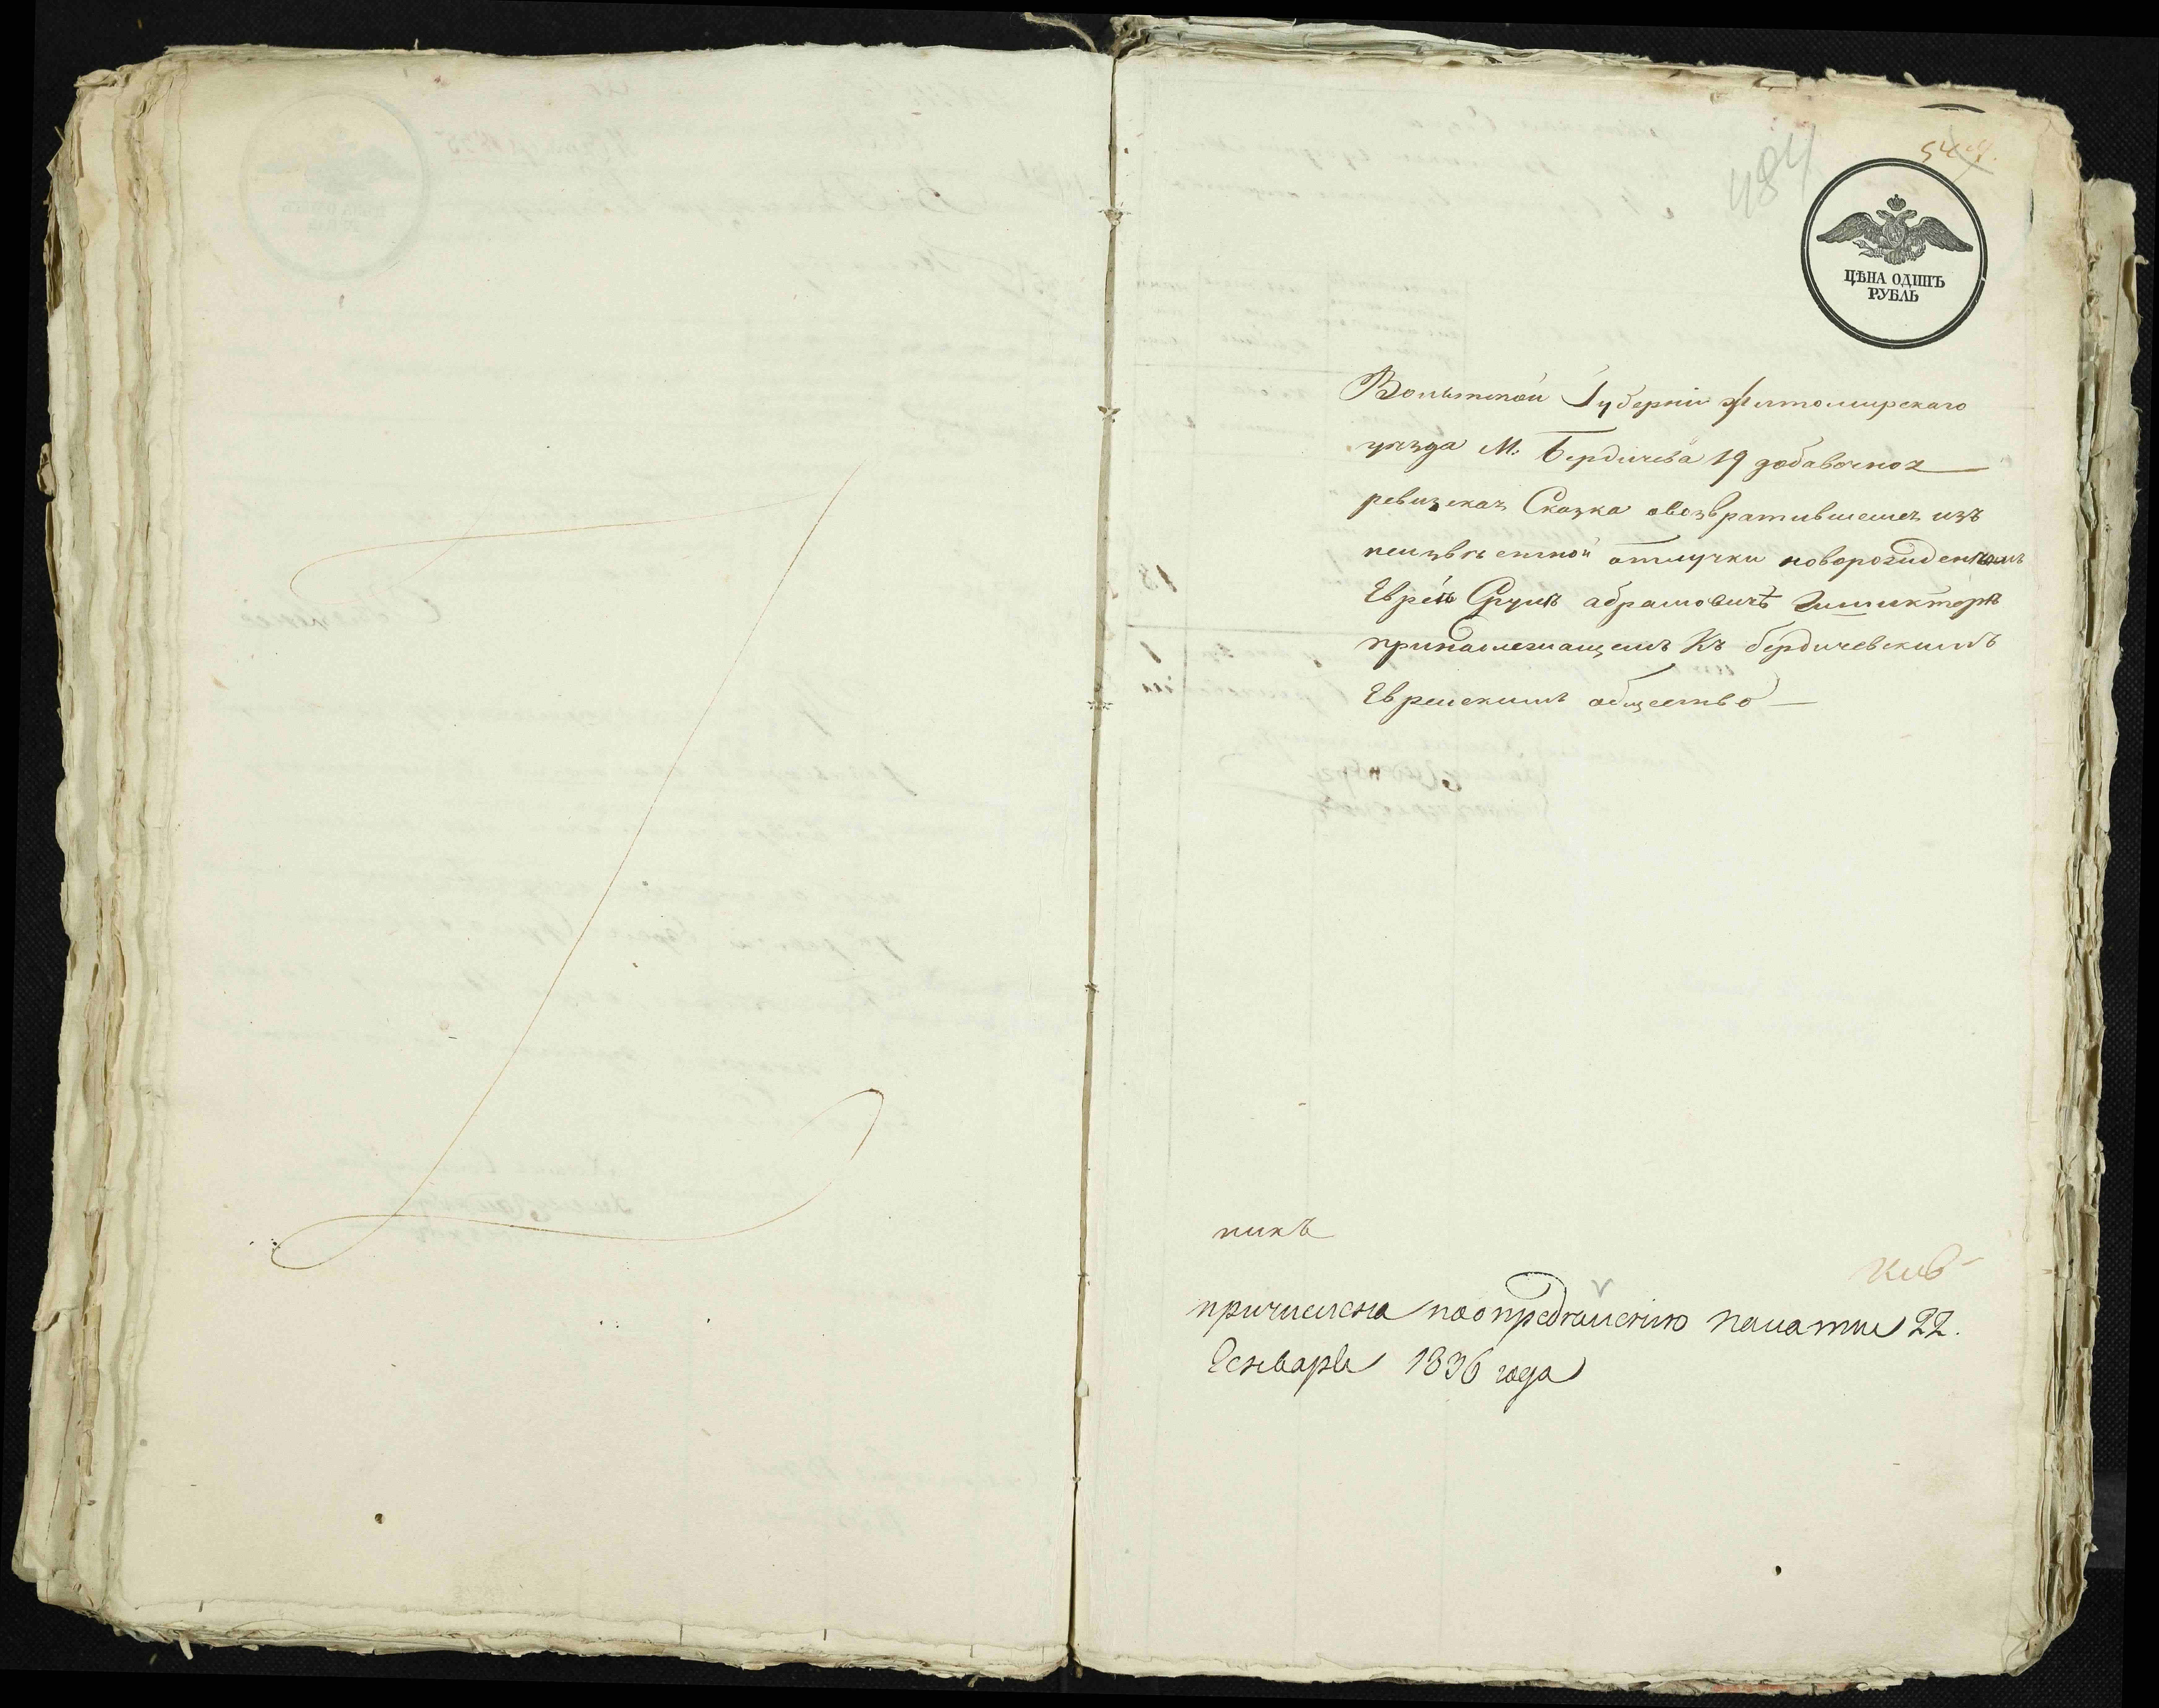 484
54
ЦѢНА ОДИНЪ
РУБЛЬ
Волынской Губерніи Житомирскаго
уѣзда М: Бердичева 19 добавочноя
ревизская Сказка овозвратившемся изъ
неизвѣстной отлучки новорожденномъ
Евреѣ Сруль абрамовичѣ
принадлежащемъ Къ бердичевскимъ
Еврейскимъ общество
никъ
причислена поопредѣленію палаты 22.
Генваря 1836 года